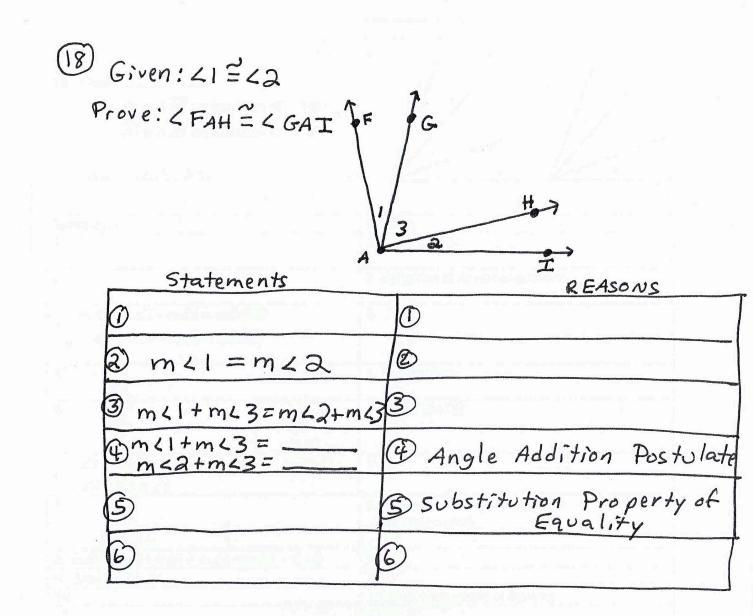 18 Given: ∠1 ≅ ∠2
Prove: ∠FAH ≅ ∠GAI
F
G
1
3
H
2
A
I
Statements
REASONS
①
①
② m∠1 = m∠2
②
③ m∠1 + m∠3 = m∠2 + m∠3
③
④ m∠1 + m∠3 = ______
m∠2 + m∠3 = ______
④ Angle Addition Postulate
⑤
⑤ Substitution Property of
Equality
⑥
⑥